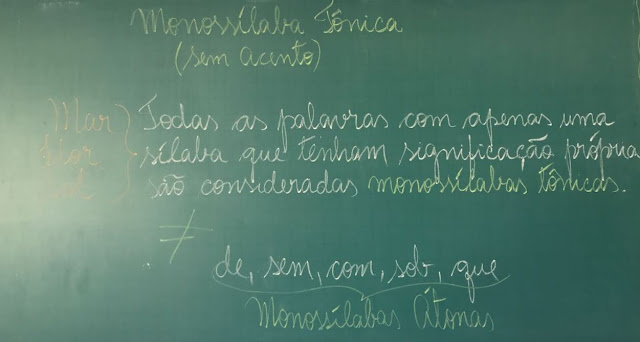 Monossílaba Tônica
(sem acento)
Mar } Todas as palavras com apenas uma
flor sílaba que tenham significação própria
sol são consideradas monossílabas tônicas.
≠
de, sem, com, sob, que
Monossílabas Átonas